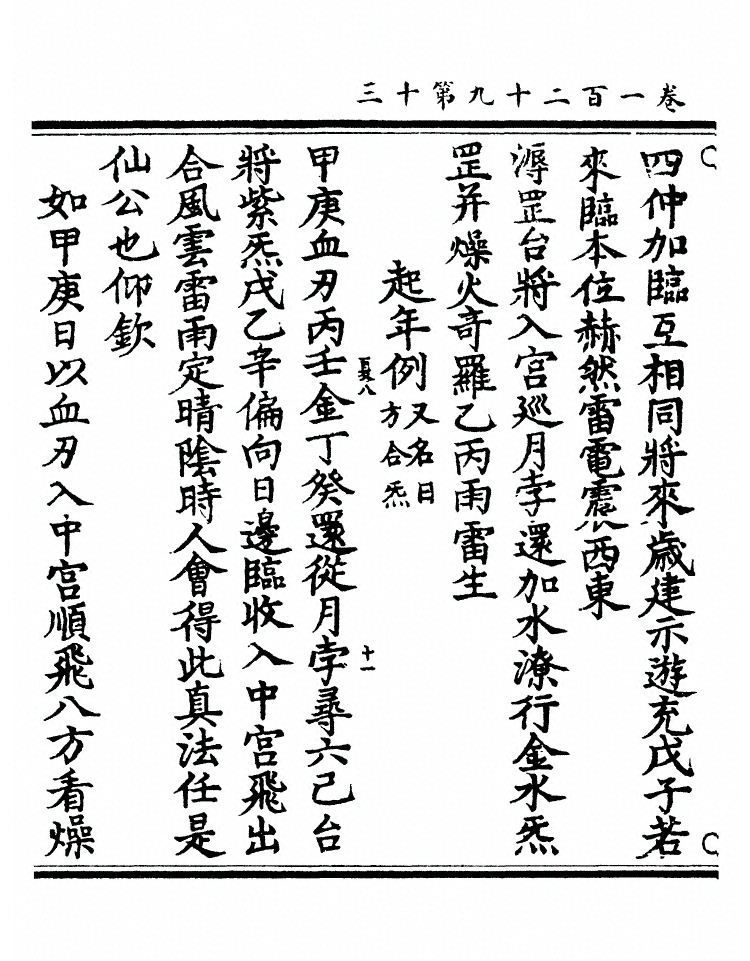 卷一百二十九第十三
四仲加臨互相同將來歲建示遊充戊子若
來臨本位赫然雷電震西東
溽罡台將入宮廵月孛還加水潦行金水炁
罡并燥火奇羅乙丙雨雷生
起年例又名日方合炁
甲庚血刃丙壬金丁癸還從月孛尋六己台
夏八
十一
將紫炁戌乙辛偏向日邊臨收入中宮飛出
合風雲雷雨定晴陰時人會得此真法任是
仙公也仰欽
如甲庚日以血刃入中宮順飛八方看燥